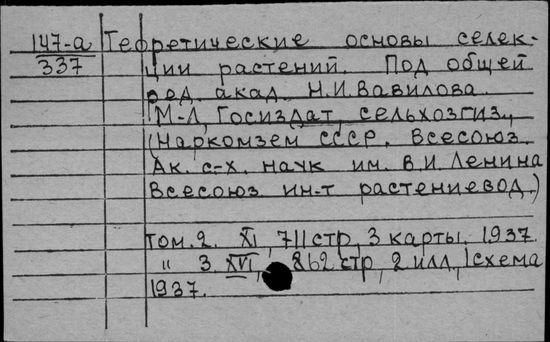 147-а Теоретические основы селек-
337 ции растений. Под общей
ред. акад. Н.И. Вавилова.
М-Л, Госиздат, сельхозгиз.,
(Наркомзем СССР. Всесоюз.
Ак. с-х. наук им. В.И. Ленина
Всесоюз. ин-т растениевод.)
том. 2. XI, 711 стр, 3 карты. 1937.
" 3. XVI, 862 стр, 2 илл, 1 схема
1937.